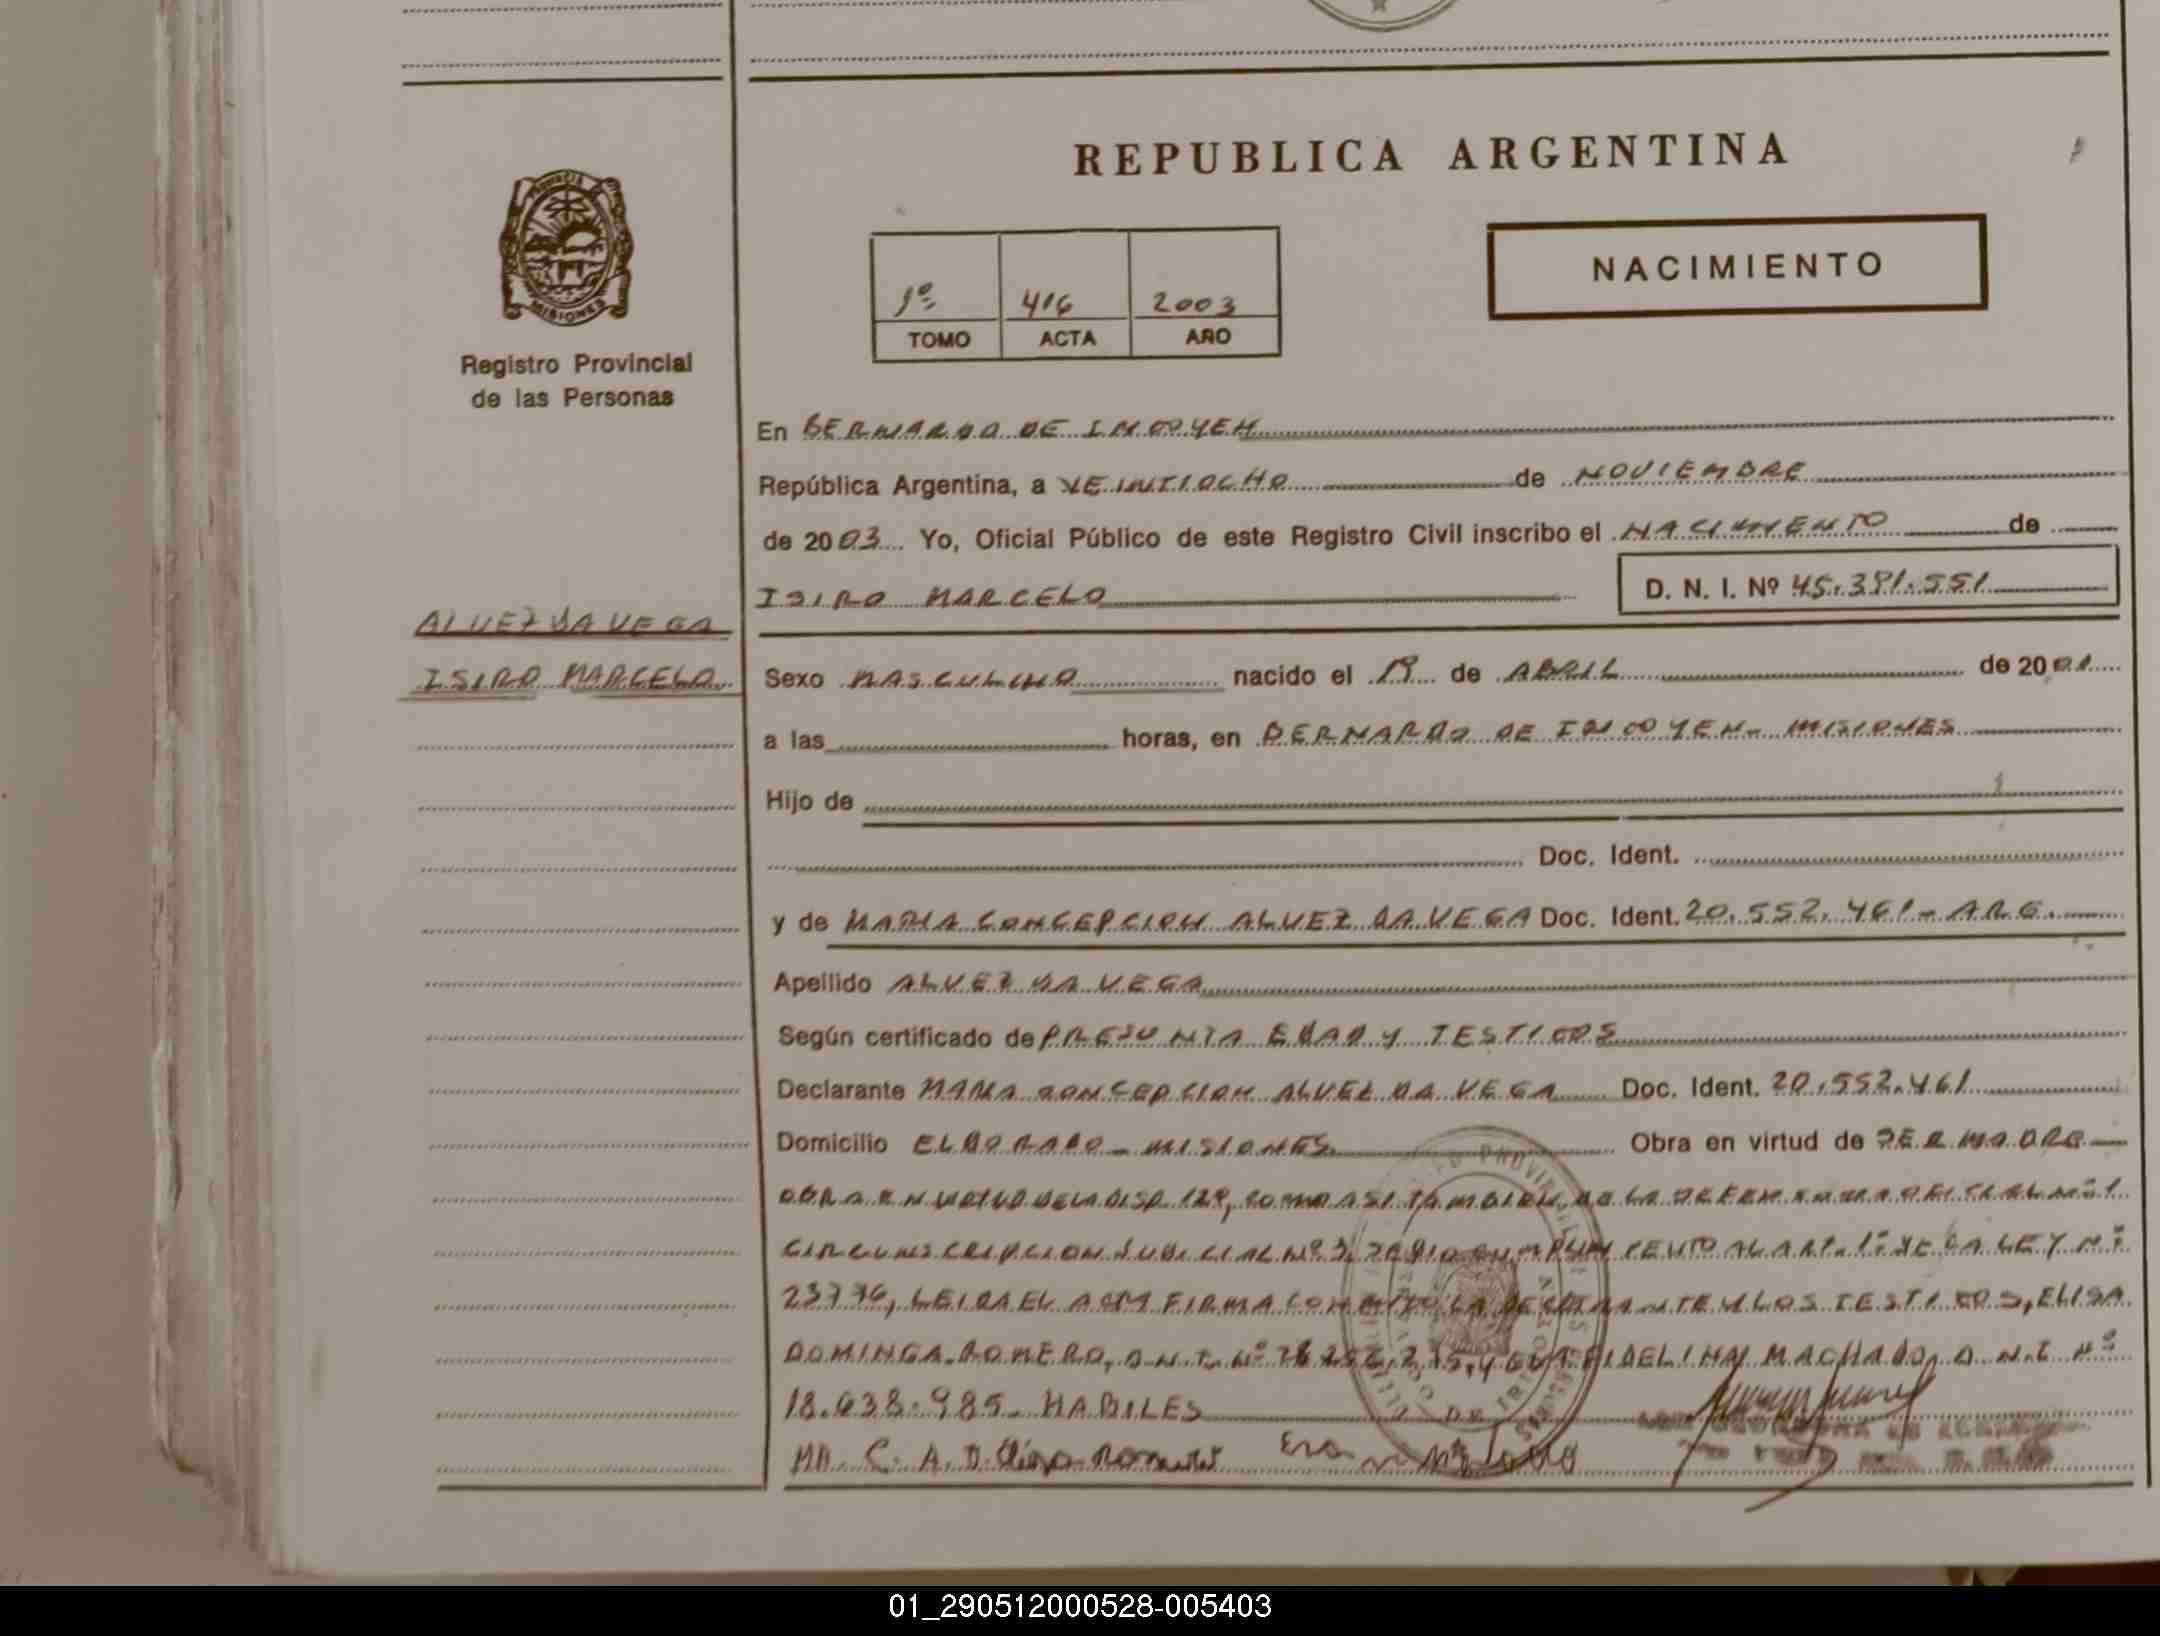 REPUBLICA ARGENTINA
NACIMIENTO
1º 416 2003
TOMO ACTA AÑO
MISIONES
Registro Provincial
de las Personas
En BERNARDO DE IRIGOYEN
República Argentina, a VEINTIOCHO de NOVIEMBRE
de 2003 Yo, Oficial Público de este Registro Civil inscribo el NACIMIENTO de
ISIRO MARCELO D. N. I. Nº 45.391.551
ALVEZ DA VEGA
ISIRO MARCELO
Sexo MASCULINO nacido el 19 de ABRIL de 2001
a las horas, en BERNARDO DE IRIGOYEN - MISIONES
Hijo de
Doc. Ident.
y de MARIA CONCEPCION ALVEZ DA VEGA Doc. Ident. 20.552.461 - ARG.
Apellido ALVEZ DA VEGA
Según certificado de PRESUNTA EDAD Y TESTIGOS
Declarante MARIA CONCEPCION ALVEZ DA VEGA Doc. Ident. 20.552.461
Domicilio ELDORADO - MISIONES Obra en virtud de SER MADRE
OBRA EN VIRTUD DE LA DISP. 129, COMO ASI TAMBIEN DE LA DEFENSORIA OFICIAL Nº 1
CIRCUNSCRIPCION JUDICIAL Nº 3, AL ART. 1º DE LA LEY Nº
23776, LEIDA EL ACTA FIRMA CONMIGO LA DECLARANTE Y LOS TESTIGOS, ELISA
DOMINGA ROMERO, D.N.I. Nº FIDELINA MACHADO, D.N.I Nº
18.638.985 - HABILES
M. C. A. D. Elisa Romero
01_290512000528-005403